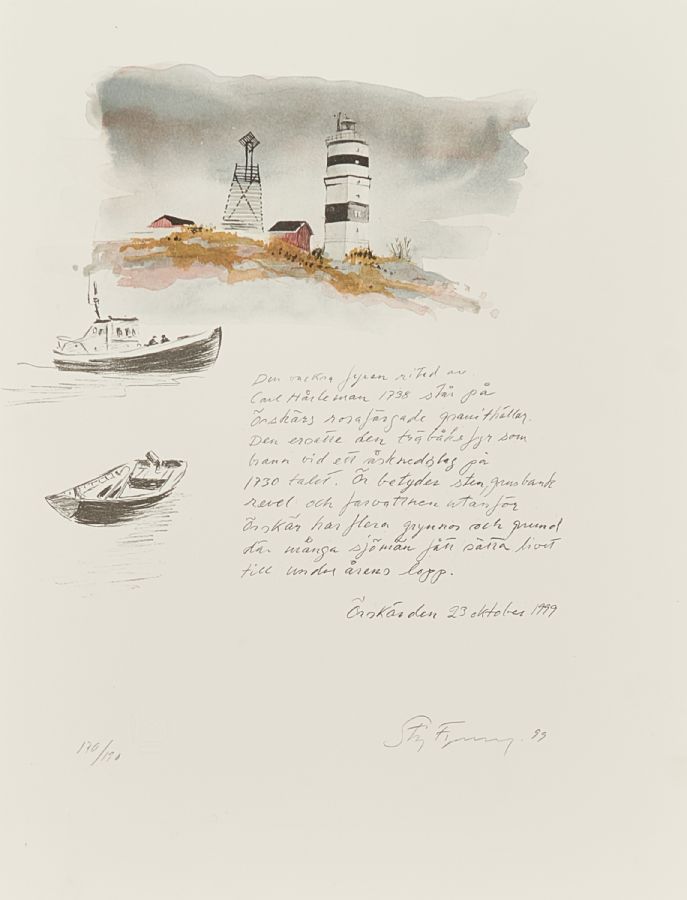 Den vackra fyren ritad av
Carl Hårleman 1738 står på
Örskärs rosafärgade granithällar.
Den ersatte den träbåksfyr som
brann vid ett åsknedslag på
1730 talet. Ör betyder sten, grusbank
revel och farvattnen utanför
Örskär har flera grynnor och grund
där många sjömän fått sätta livet
till under årens lopp.
Örskär den 23 oktober 1999
190/190
Stig F 99